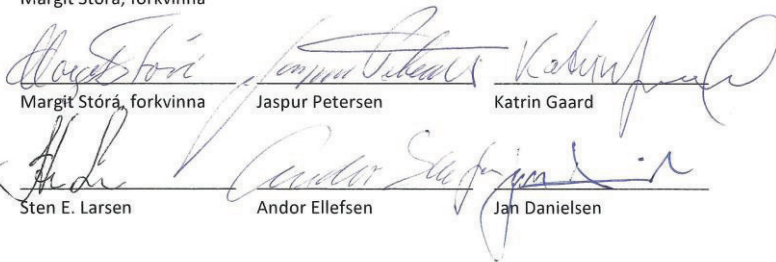 Margit Stórá, forkvinna
Margit Stórá, forkvinna Jaspur Petersen Katrin Gaard
Sten E. Larsen Andor Ellefsen Jan Danielsen